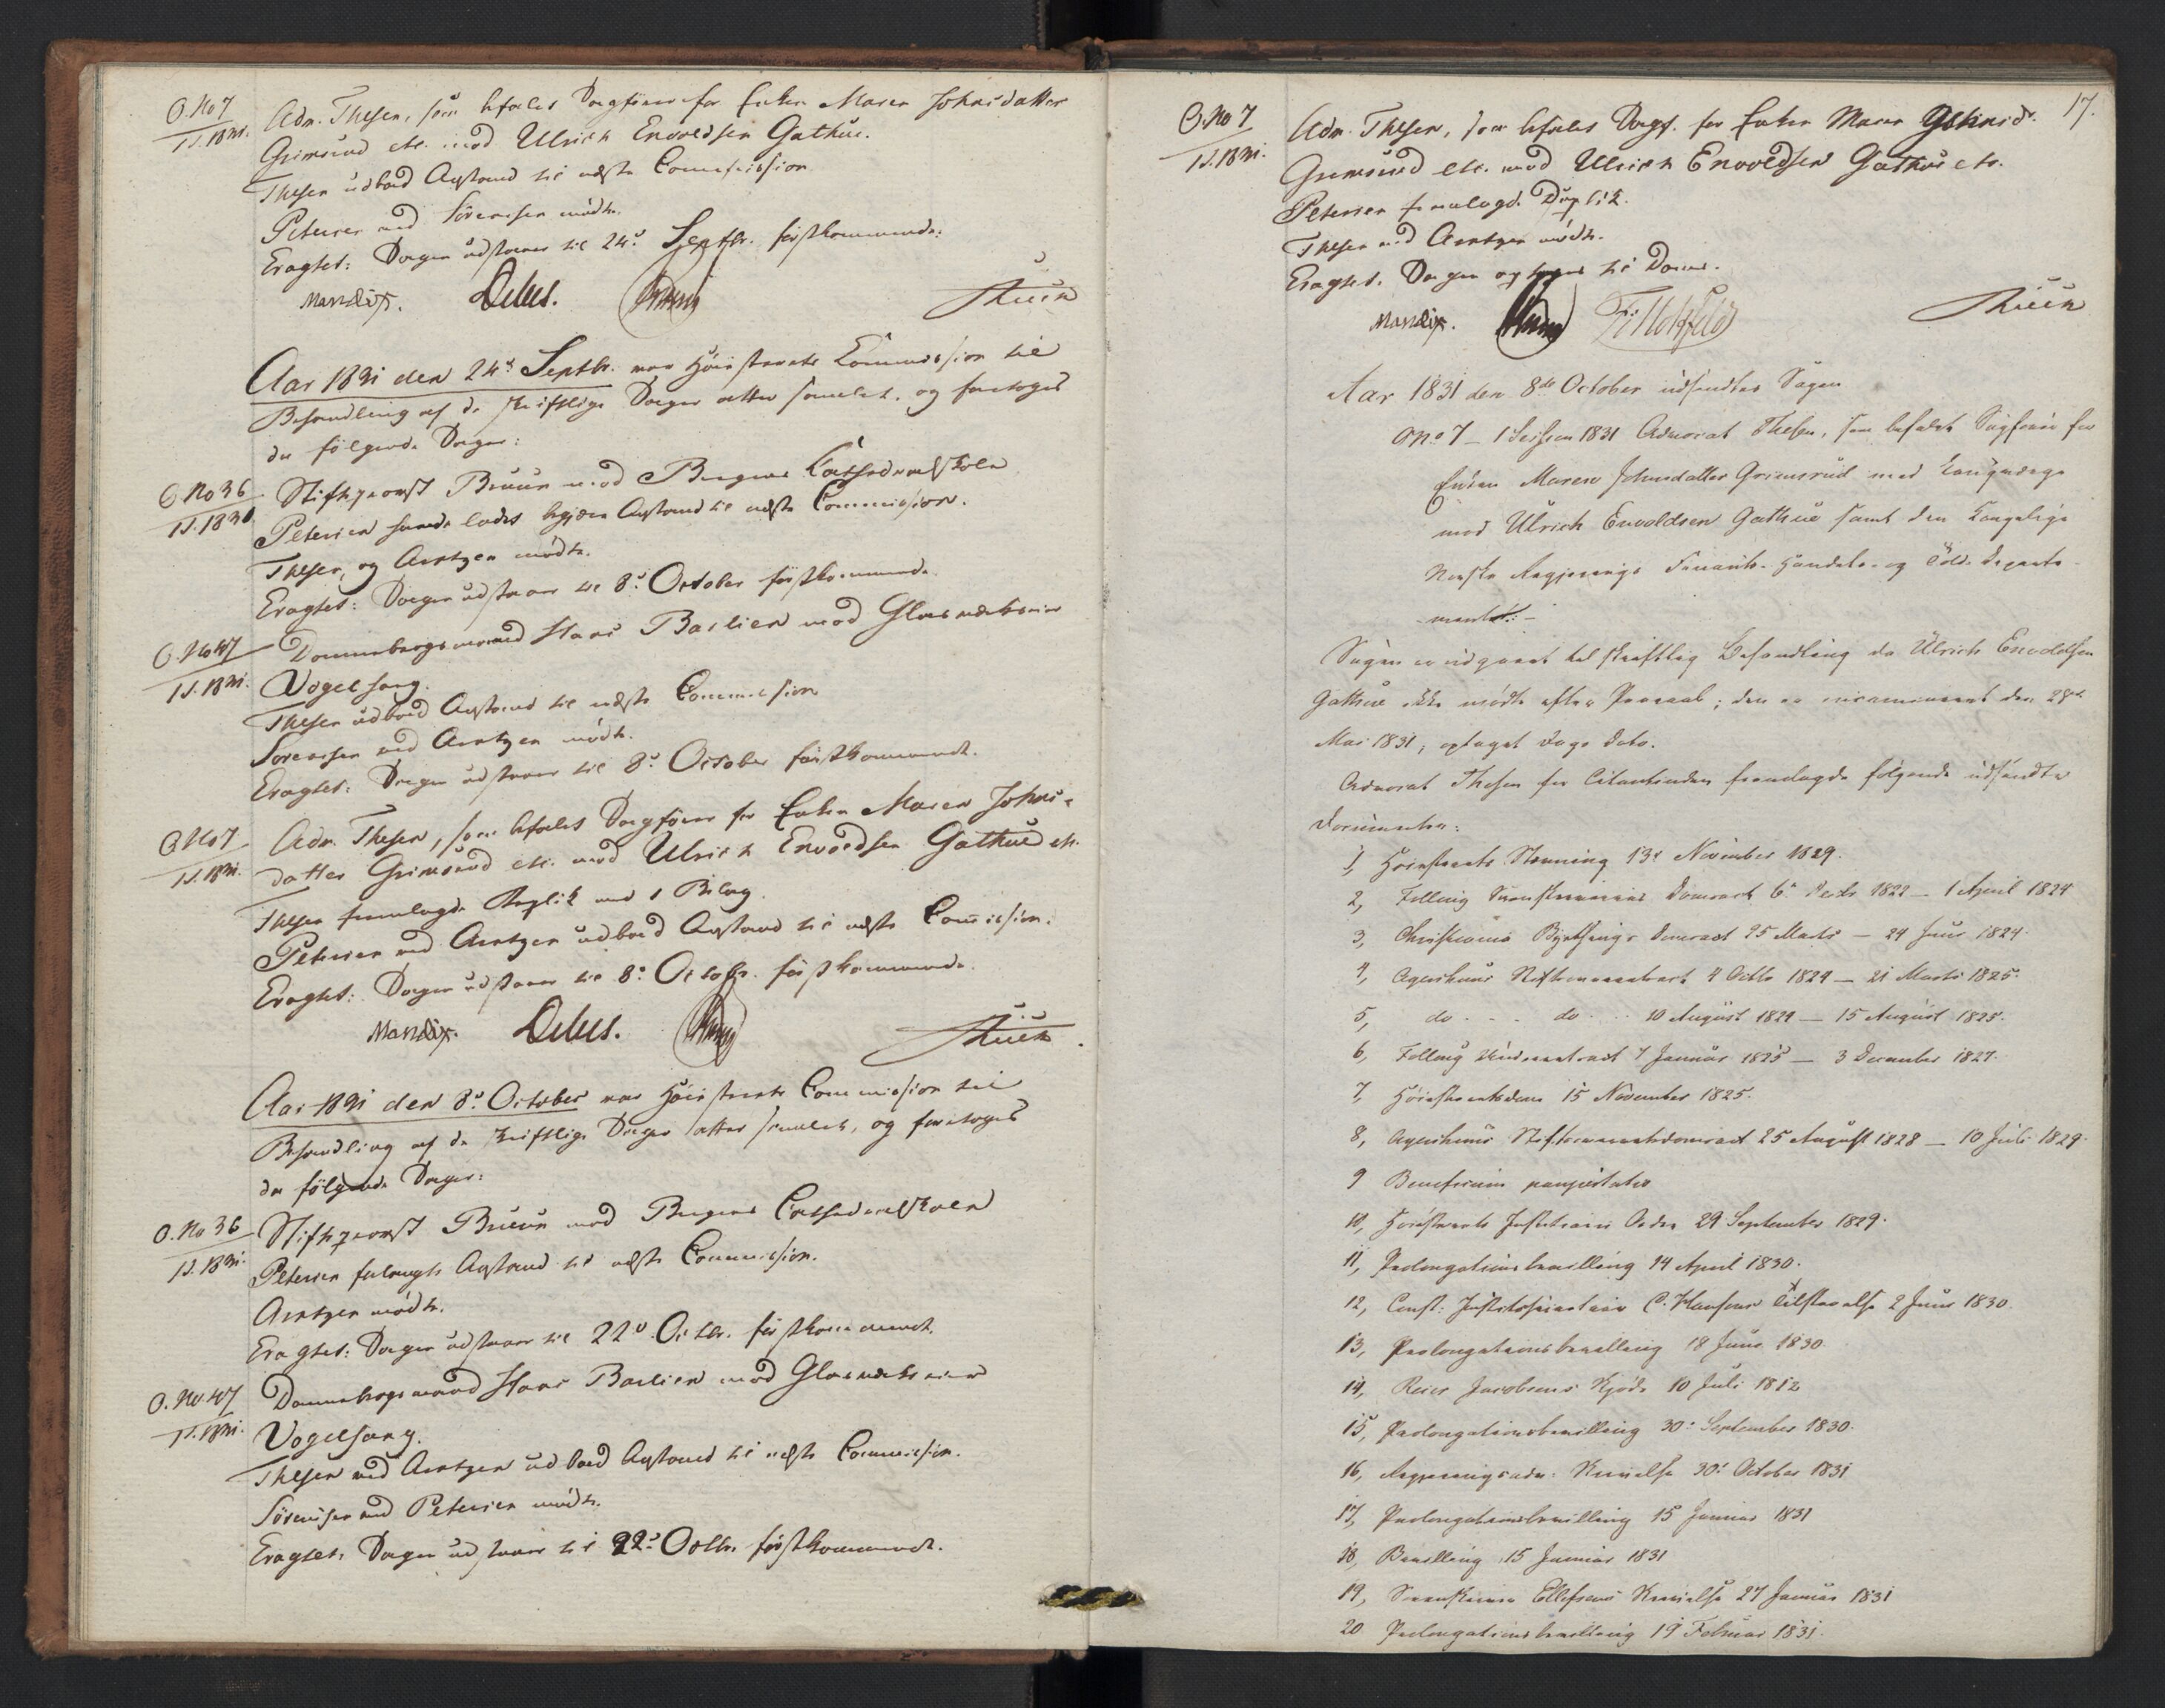 O. No 7
1 S. 1831.
Adv. Thesen, som befalet Sagfører for Enken Maren Johnsdatter
Grimsrud etc. mod Ulrich Envoldsen Gathue.
Thesen udbad Anstand til næste Commission
Petersen ved Sörensen mödte.
Eragtet: Sagen udstaaer til 24d Septbr. förstkommende.
Mandix. Debes.
Aar 1831 den 24d Septbr. var Höiesterets Commission til
Behandling af de skriftlige Sager atter samlet, og foretoges
da fölgende Sager:
O. No 36
1 S. 1830.
Stiftsprovst Bruun mod Bergens Cathedralskole
Petersen lod begjære Anstand til næste Commission.
Thesen og Arntzen mödte.
Eragtet: Sagen udstaaer til 8d October förstkommende
O. No 47
1 S. 1831.
Dannebrogsmand Hans Barlien mod Glasværkseier
Vogelsang.
Thesen udbad Anstand til næste Commission
Sörensen ved Arntzen mödte.
Eragtet: Sagen udstaaer til 8d October förstkommende.
O. No 7
1 S. 1831.
Adv. Thesen, som befalet Sagförer for Enken Maren Johns-
datter Grimsrud etc. mod Ulrich Envoldsen Gathue etc.
Thesen fremlagde Replik med 1 Bilag.
Petersen ved Arntzen udbad Anstand til næste Commission.
Eragtet: Sagen udstaaer til 8d Octobr. förstkommende.
Mandix. Debes.
Aar 1831 den 8d October var Höiesterets Commission til
Behandling af de skriftlige Sager atter samlet, og foretoges
da fölgende Sager:
O. No 36
1 S. 1831.
Stiftsprovst Bruun mod Bergens Cathedralskole
Petersen forlangte Anstand til næste Commission.
Arntzen mödte.
Eragtet: Sagen udstaaer til 22d Octbr. förstkommende.
O. No. 47
1 S. 1831.
Dannebrogsmand Hans Barlien mod Glasværkseier
Vogelsang.
Thesen ved Arntzen udbad Anstand til næste Commission.
Sörensen ved Petersen mödte.
Eragtet: Sagen udstaaer til 22d Octbr. förstkommende.
17.
O. No 7
1 S. 1831.
Adv. Thesen, som befalet Sagf. for Enken Maren Johnsd.
Grimsrud etc. mod Ulrich Envoldsen Gathue etc.
Petersen fremlagde Duplik.
Thesen ved Arntzen mödte.
Eragtet. Sagen optages til Doms.
Mandix.
Aar 1831 den 8de October udsendtes Sagen
O No 7 – 1 Session 1831 Advocat Thesen, som befalet Sagförer for
Enken Maren Johnsdatter Grimsrud med Laugværge
mod Ulrich Envoldsen Gathue samt den Kongelige
Norske Regjerings Finants- Handels- og Told-Departe-
mentet. –
Sagen er udgaaet til skriftlig Behandling da Ulrich Envoldsen
Gathue ikke mödte efter Paaraab; den er incamineret den 28de
Mai 1831, optaget Dags Dato.
Advocat Thesen for Citantinden fremlagde fölgende udsendte
Documenter:
1, Höiesterets Stævning 13d November 1829.
2, Folloug Sorenskriveries Domsact 6. Decbr 1822 – 1 April 1824
3, Christiania Byethings Domsact 25 Marts – 24 Juni 1824.
4, Agershuus Stiftsoveretsact 4 Octbr 1824 – 21 Marts 1825.
5, do . . . do . . . 10 August 1824 – 15 August 1825.
6, Folloug Underretsact 7 Januar 1825 – 3 December 1827.
7, Höiesteretsdom 15 November 1825.
8, Agershuus Stiftsoveretsdomsact 25 August 1828 – 10 Juli 1829.
9 Beneficium paupertatis
10, Höiesterets Justitiarii Ordre 29 September 1829.
11, Prolongationsbevilling 14 April 1830.
12, Const: Justitssecretair C. Hansens Tilstaaelse 2 Juni 1830.
13, Prolongationsbevilling 18 Juni 1830.
14, Reier Jacobsens Skjöde 10 Juli 1812
15, Prolongationsbevilling 30. September 1830.
16, Regjeringsadv. Skrivelse 30. October 1831
17, Prolongationsbevilling 15 Januar 1831
18, Bevilling 15 Januar 1831
19, Sorenskriver Ellefsens Skrivelse 27 Januar 1831
20 Prolongationsbevilling 19 Februar 1831.